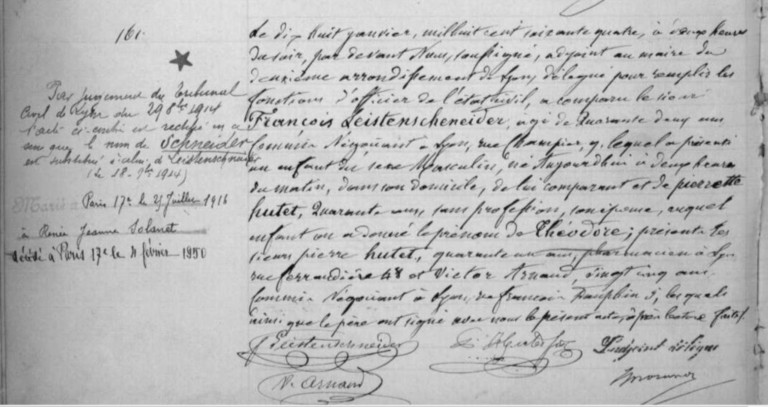 161.
Par jugement du Tribunal
Civil de Lyon du 29 8bre 1914
l'acte ci-contre est rectifié en ce
sens que le nom de Schneider
est substitué à celui de Leistenschneider
(le 18 - 9bre 1914)
Marié à Paris 17e le 27 Juillet 1916
à Renée Jeanne Solanet
décédé à Paris 17e le 4 février 1950
Le dix huit janvier, mil huit cent soixante quatre, à deux heures
du soir, par devant Nous, soussigné, adjoint au maire du
deuxième arrondissement de Lyon, délégué pour remplir les
fonctions d'officier de l'état civil, a comparu le sieur
François Leistenscheneider, âgé de Quarante deux ans
Commis Négociant à Lyon, rue Champier, 9, lequel a présenté
un enfant du sexe Masculin, né Aujourdhui à deux heures
du matin, dans son domicile, de lui comparant et de pierrette
hutet, Quarante ans, sans profession, son épouse, auquel
enfant on a donné le prénom de Théodore; présents les
sieurs pierre hutet, quarante un ans, pharmacien à Lyon
rue ferrandière 48 et Victor Arnaud, vingt cinq ans
Commis Négociant à Lyon, rue francois Dauphin 5, lesquels
ainsi que le père ont signé avec nous le présent acte, après lecture faite.
f Leistenschneider
L'adjoint délégué
V. Arnaud